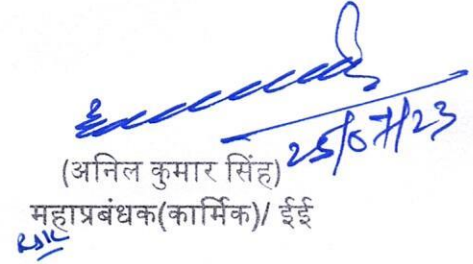 25/07/23
(अनिल कुमार सिंह)
महाप्रबंधक(कार्मिक)/ ईई